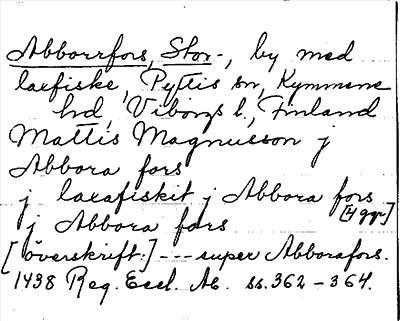 Abborrfors, Stor-, by med
laxfiske, Pyttis sn, Kymmene
hd, Viborgs l., Finland
Mattis Magnusson j
Abbora fors
j laxafiskit j Abbora fors
[4 ggr]
j Abbora fors
[överskrift:] --- super Abborafors.
1438 Reg. Eccl. Ab. ss. 362-364.